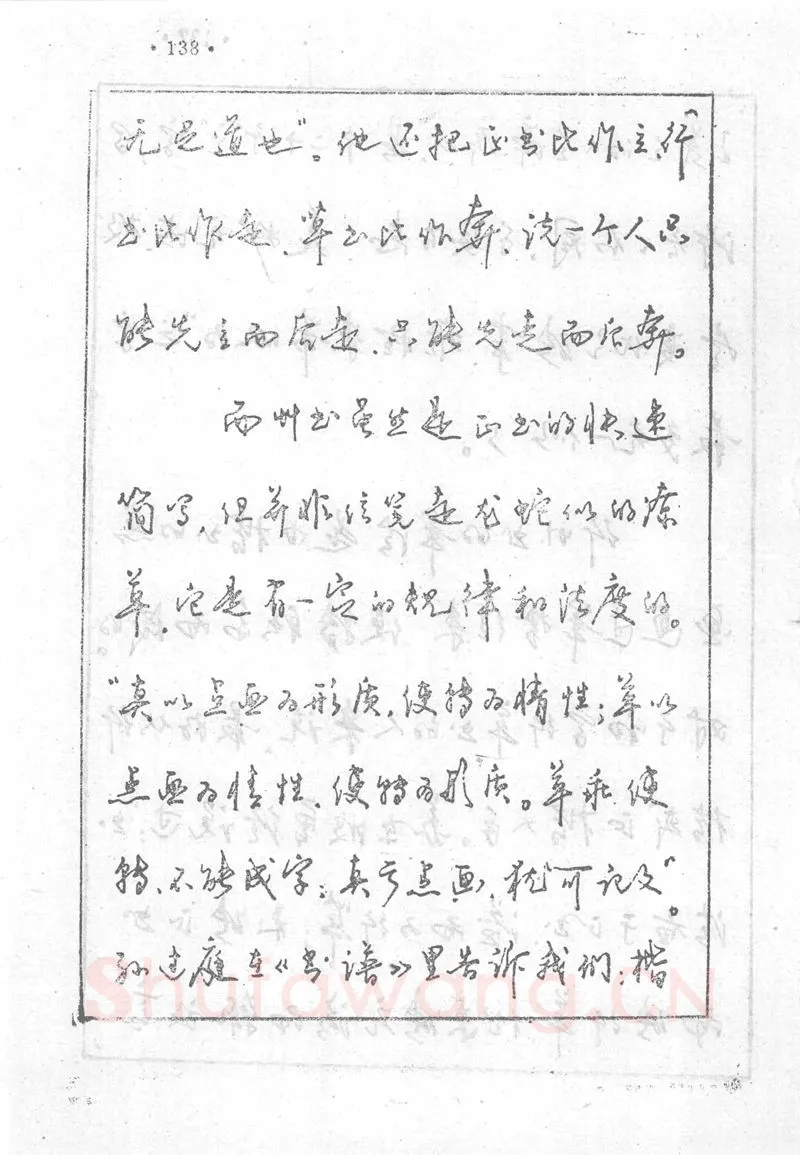 ·138·
无是道也”。他还把正书比作立，行
书比作走，草书比作奔，说一个人只
能先立而后走，只能先走而后奔。
而草书虽然是正书的快速
简写，但并非信笔走龙蛇似的潦
草，它是有一定的规律和法度的。
“真以点画为形质，使转为情性；草以
点画为情性，使转为形质。草乖使
转，不能成字；真亏点画，犹可记文”。
孙过庭在《书谱》里告诉我们，楷
Shufawang.CN